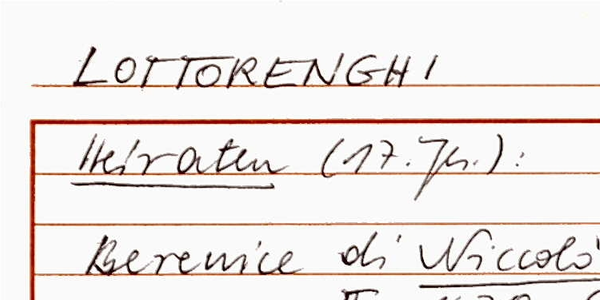 LOTTORENGHI
Heiraten (17. Jh.):
Berenice di Niccolò